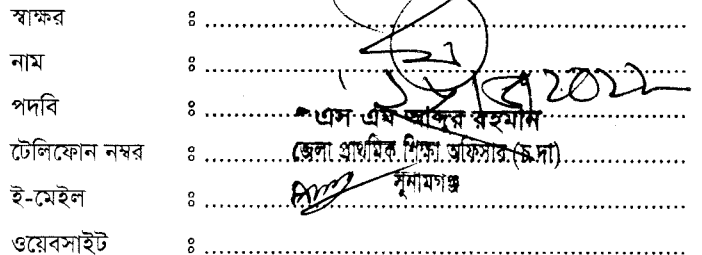 স্বাক্ষর ঃ
নাম ঃ
পদবি ঃ
এস এম আব্দুর রহমান
টেলিফোন নম্বর ঃ জেলা প্রাথমিক শিক্ষা অফিসার (চ.দা)
ই-মেইল ঃ সুনামগঞ্জ
ওয়েবসাইট ঃ